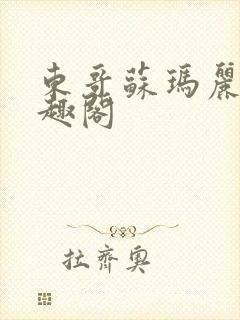 東哥蘇瑪麗
趣閣
拉齊奧